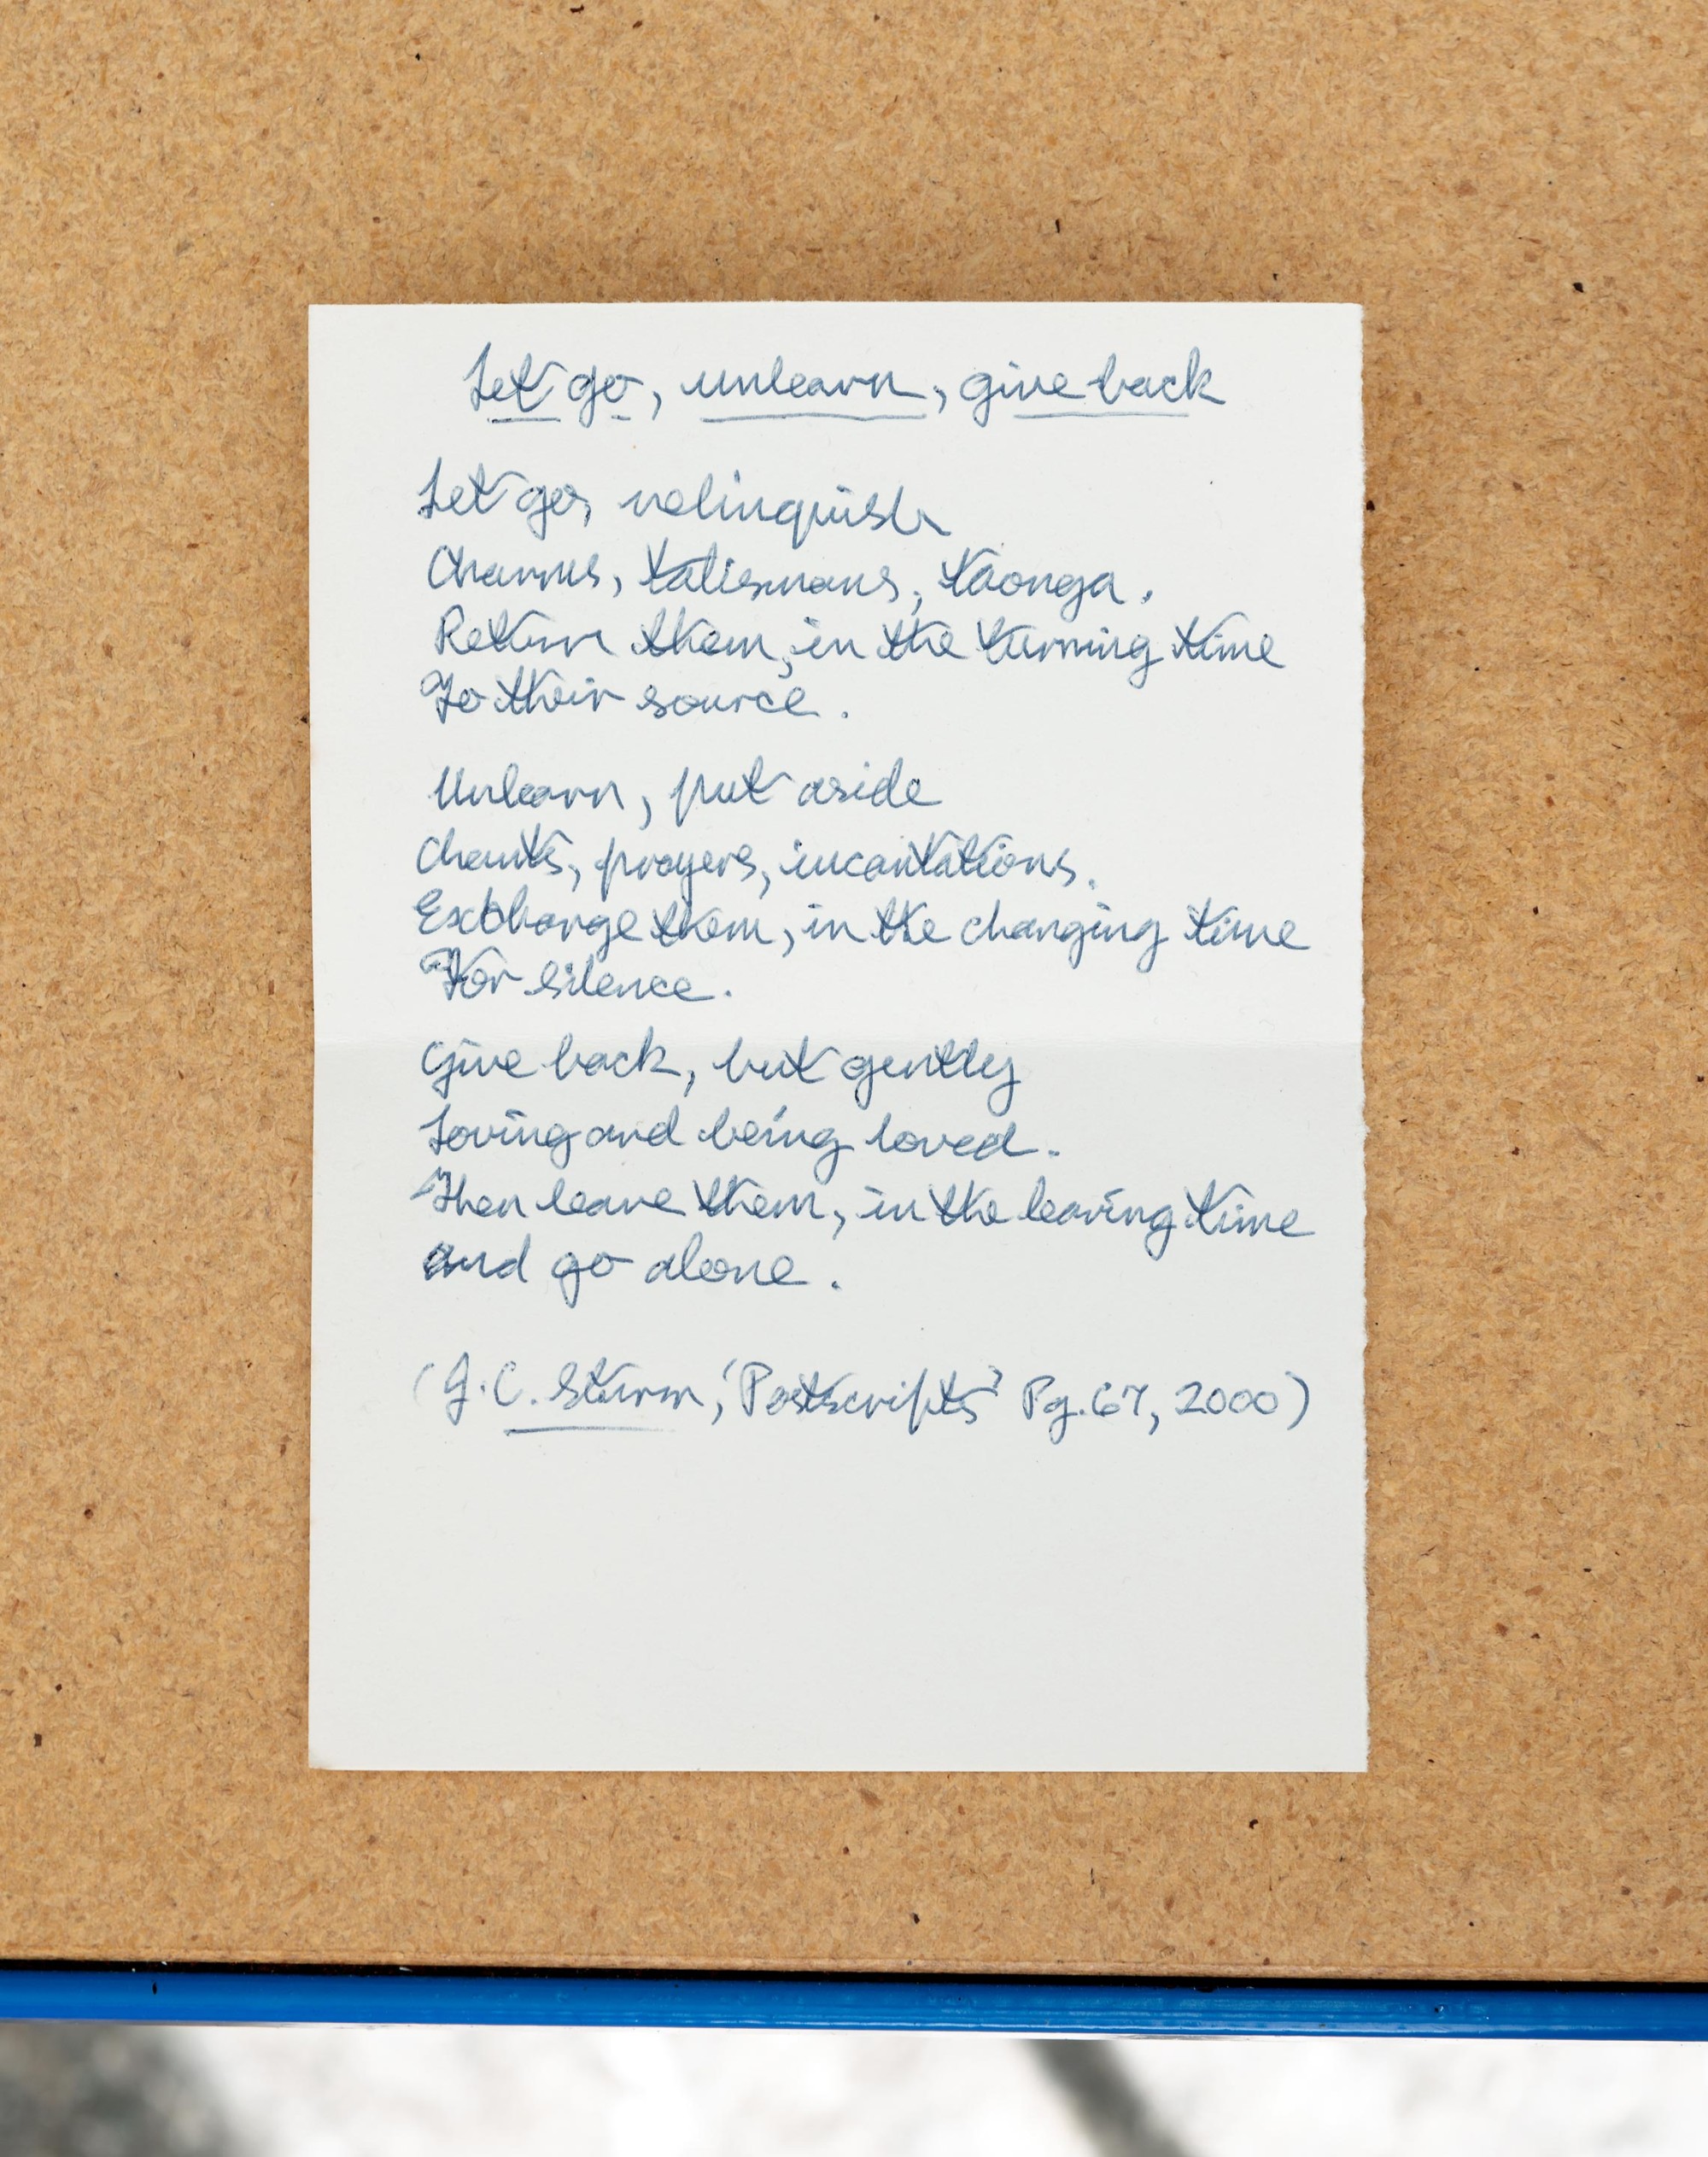 Let go, unlearn, give back
Let go, relinquish
Charms, talismans, taonga.
Return them, in the turning time
To their source.
Unlearn, put aside
Chants, prayers, incantations.
Exchange them, in the changing time
For silence.
Give back, but gently
Loving and being loved.
Then leave them, in the leaving time
And go alone.
(J.C. Sturm, 'Postscripts' Pg. 67, 2000)